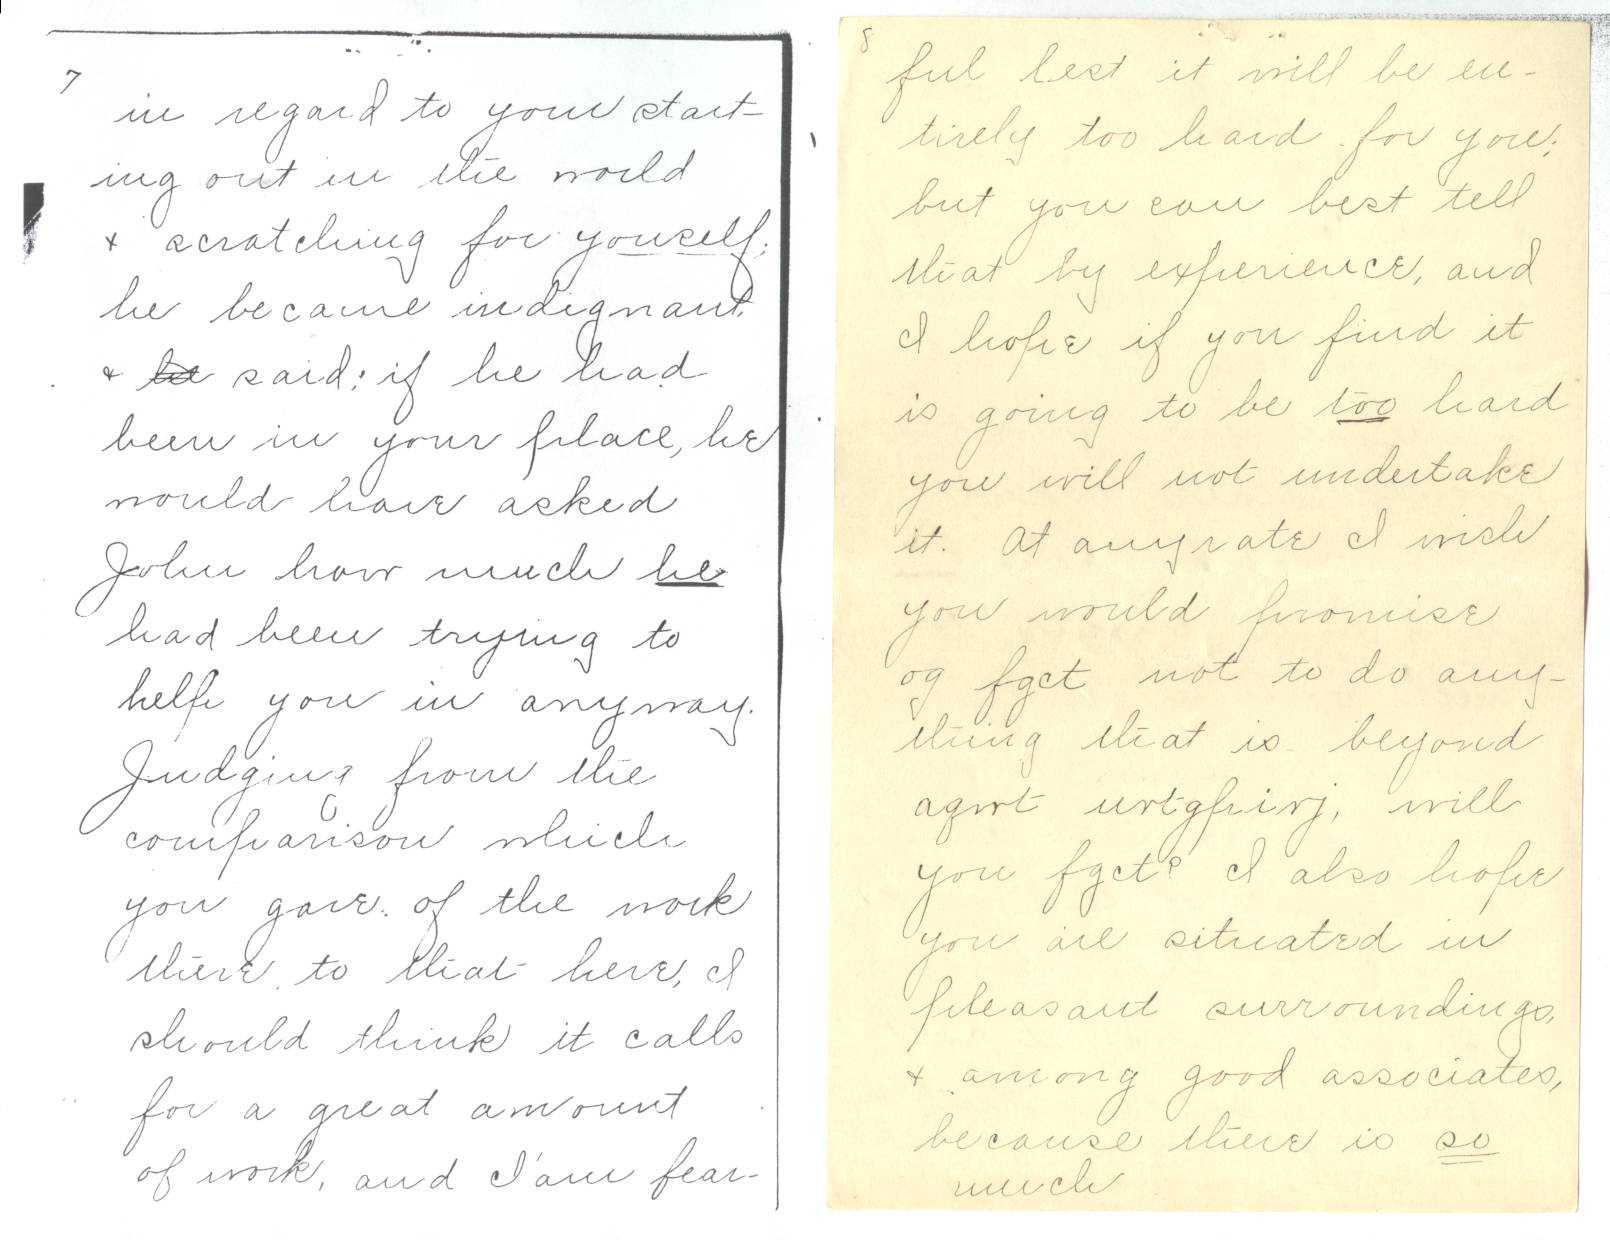 7
in regard to your start-
ing out in the world
& scratching for youself;
he became indignant.
& he said; if he had
been in your place, he
would have asked
John how much he
had been trying to
help you in anyway.
Judging from the
comparison which
you gave. of the work
there, to that here, I
should think it calls
for a great amount
of work, and I'am fear-
8
ful lest it will be en-
tirely too hard for you;
but you can best tell
that by experience, and
I hope if you find it
is going to be too hard
you will not undertake
it. At anyrate I wish
you would promise
og fgct not to do any-
thing that is beyond
agwt urtgfirj, will
you fgct? I also hope
you are situated in
pleasant surroundings,
& among good associates,
because there is so
much